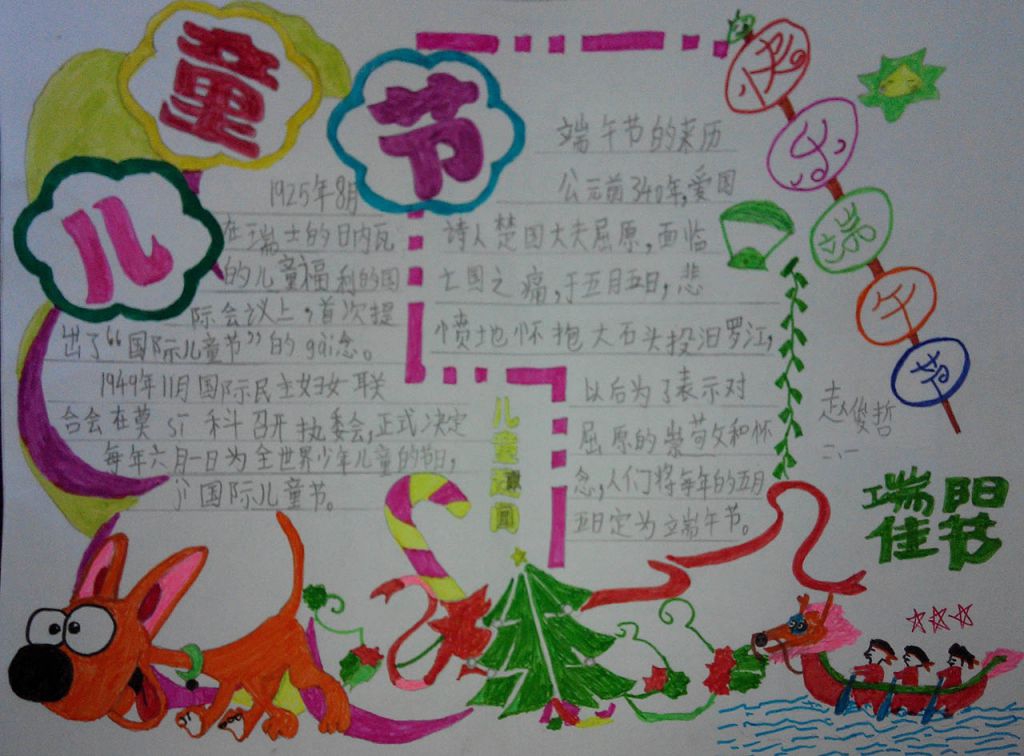 儿童节
1925年8月
在瑞士的日内瓦
的儿童福利的国
际会议上，首次提
出了“国际儿童节”的gài念。
1949年11月国际民主妇女联
合会在莫sī科召开执委会，正式决定
每年六月一日为全世界少年儿童的节日，
即国际儿童节。
儿童通闻
端午节的来历
公元前340年，爱国
诗人楚国大夫屈原，面临
亡国之痛，于五月五日，悲
愤地怀抱大石头投汩罗江，
以后为了表示对
屈原的崇敬和怀
念，人们将每年的五月
五日定为端午节。
快乐端午节
赵俊哲
二、一
端阳
佳节